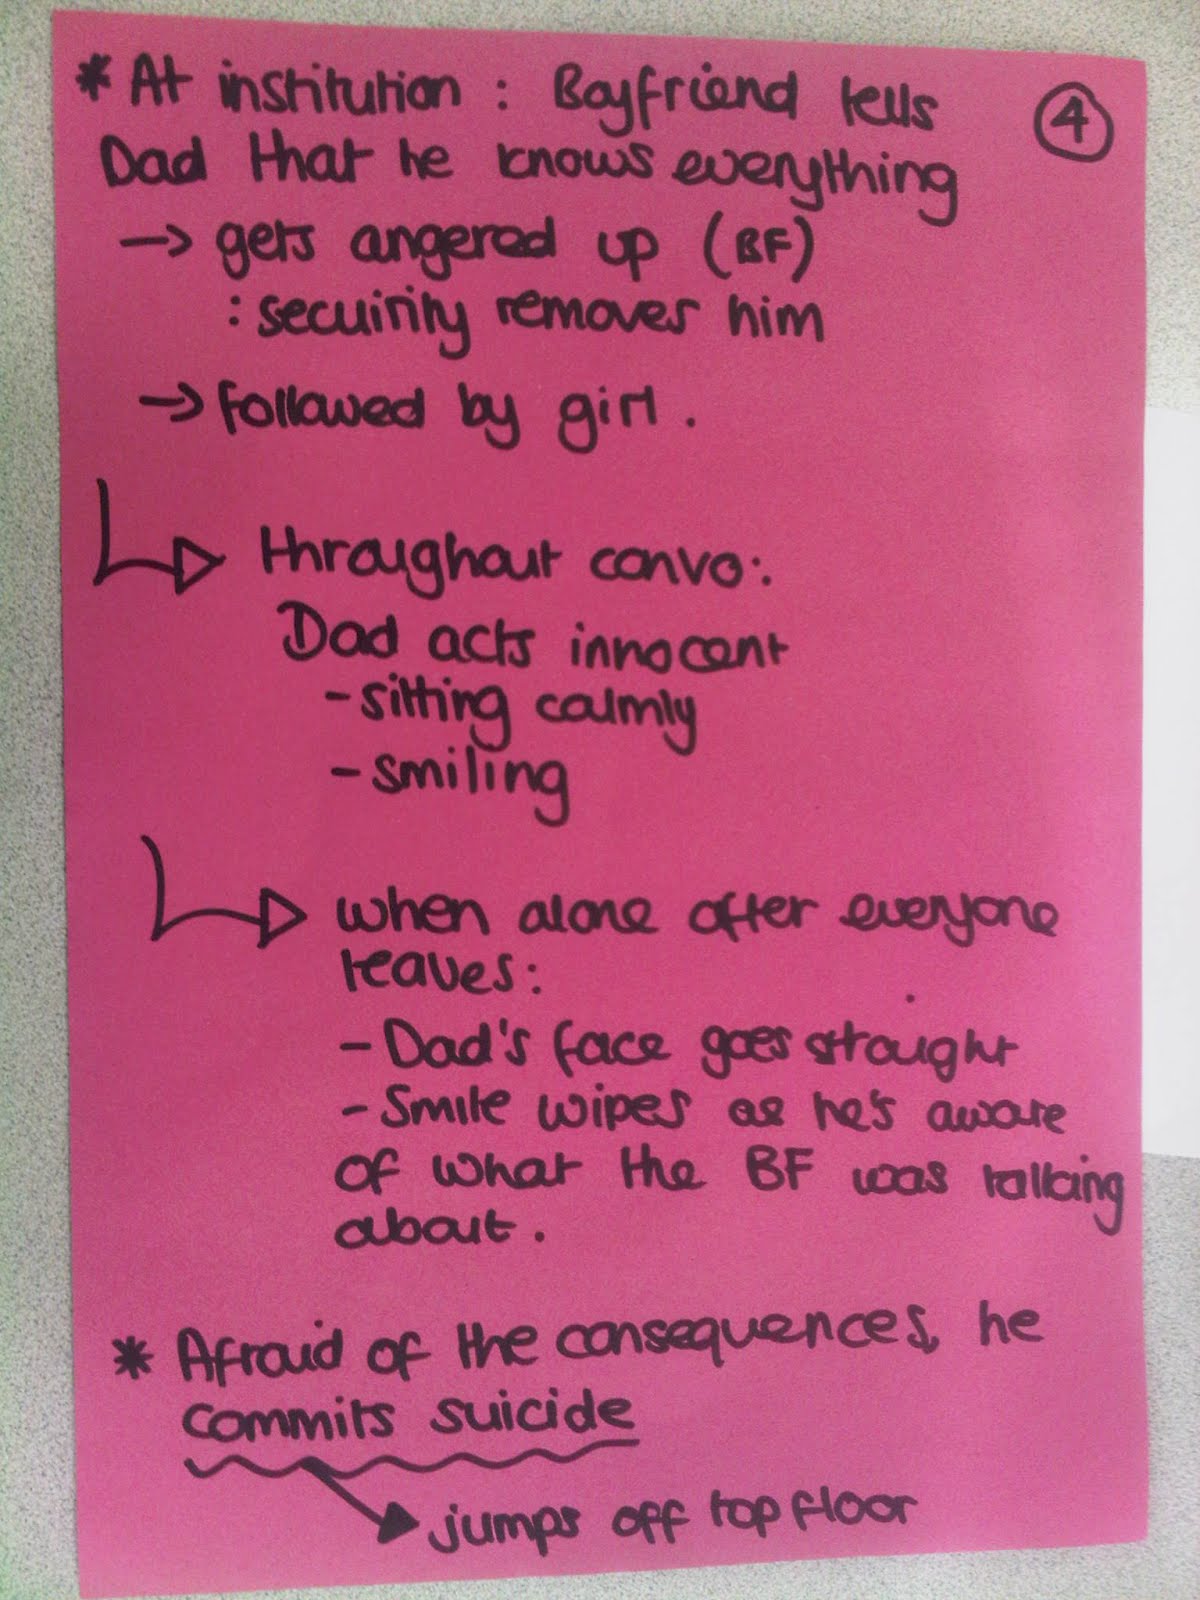 * At institution : Boyfriend tells
④
Dad that he knows everything
→ gets angered up (BF)
: secuirity removes him
→ followed by girl.
throughout convo:
Dad acts innocent
- sitting calmly
- smiling
when alone after everyone
leaves:
- Dad's face goes straight
- Smile wipes as he's aware
of what the BF was talking
about.
* Afraid of the consequences, he
commits suicide
jumps off top floor